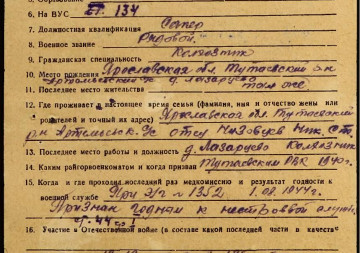 6. На ВУС 134
7. Должностная квалификация Сапер
8. Военное звание Рядовой
9. Гражданская специальность Колхозник
10. Место рождения Ярославская обл Тутаевский р-н
д. Лазарцево
11. Последнее место жительство там же
12. Где проживает в настоящее время семья (фамилия, имя и отчество жены или
родителей и точный их адрес) Ярославская обл Тутаевский
р-н с/с отец Ник.
13. Последнее место работы и должность д. Лазарцево Колхозник
14. Каким райгорвоенкоматом и когда призван Тутаевским РВК 1940г.
15. Когда и где проходил последний раз медкомиссию и результат годности к
военной службе При э/г № 1352 1.08.1944г.
Признан годным к нестроевой службе
16. Участие в Отечественной войне (в составе какой последней части в качестве